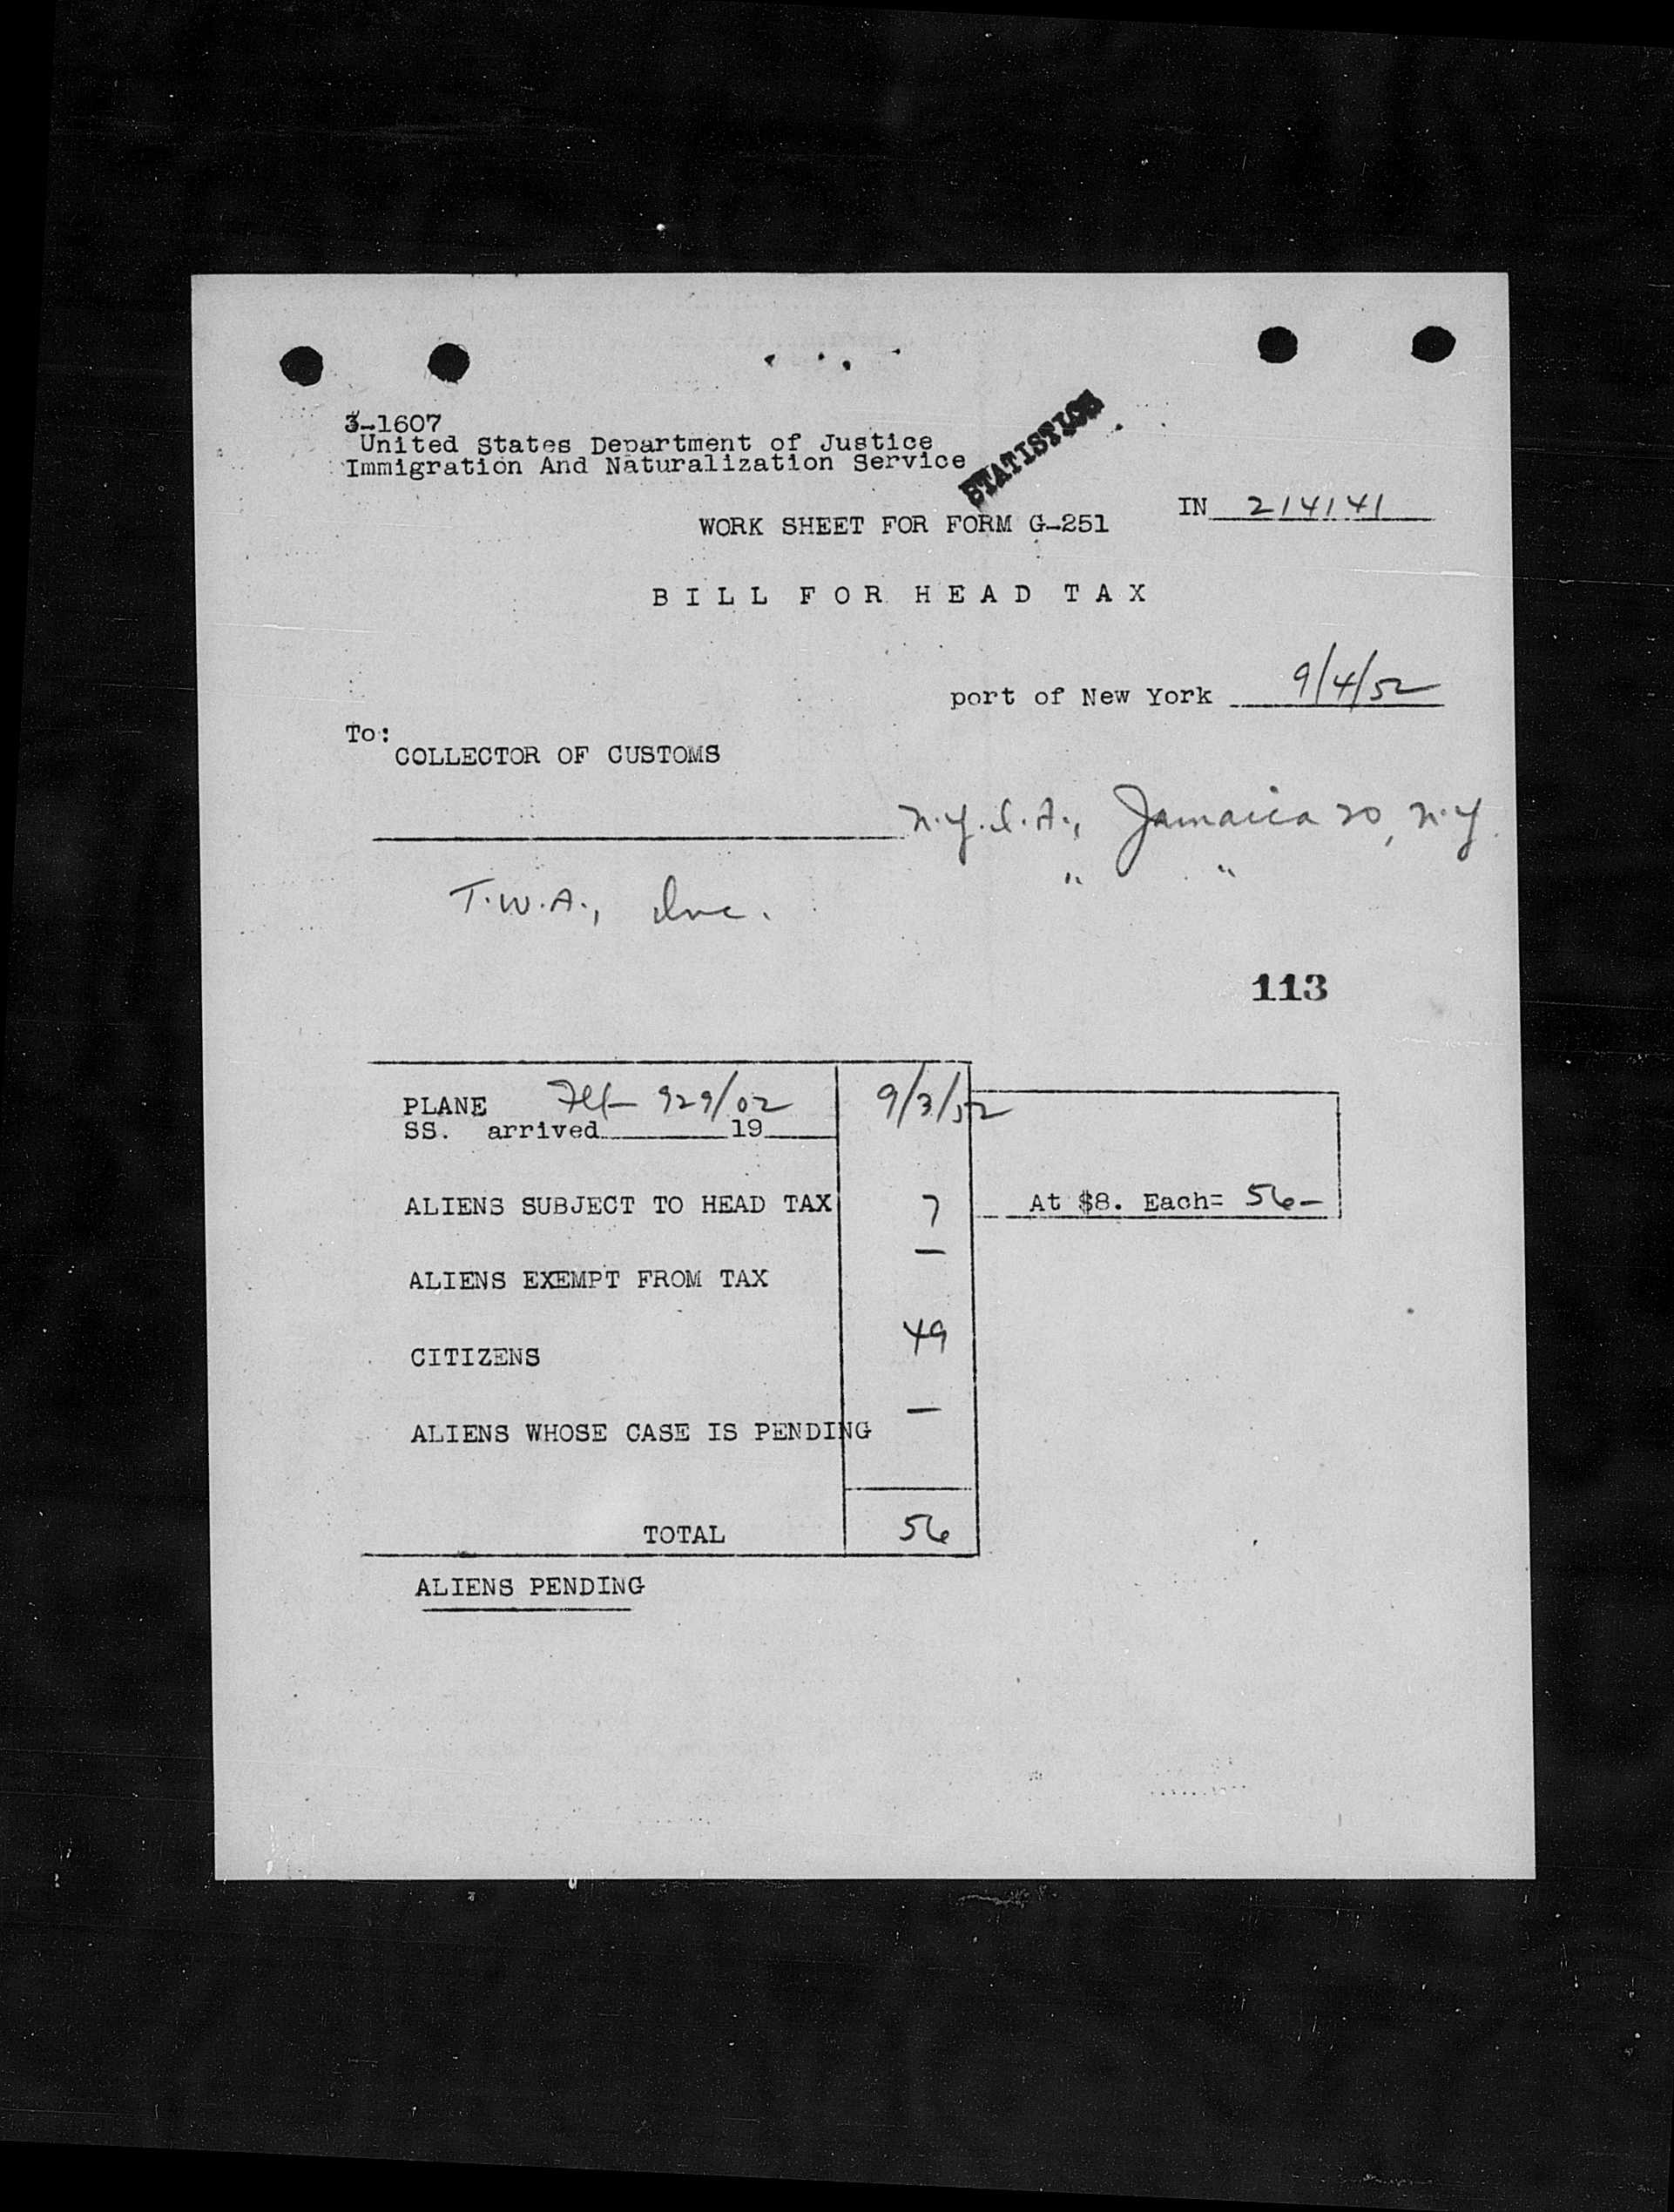 3-1607
United States Department of Justice
Immigration And Naturalization Service
STATISTICS
IN 214141
WORK SHEET FOR FORM G-251
BILL FOR HEAD TAX
port of New York 9/4/52
To:
COLLECTOR OF CUSTOMS
N.Y.I.A., Jamaica 20, N.Y.
T.W.A., Inc. " "
113
PLANE Flt 929/02 9/3/52
SS. arrived 19
ALIENS SUBJECT TO HEAD TAX 7 At $8. Each= 56-
ALIENS EXEMPT FROM TAX —
CITIZENS 49
ALIENS WHOSE CASE IS PENDING —
TOTAL 56
ALIENS PENDING